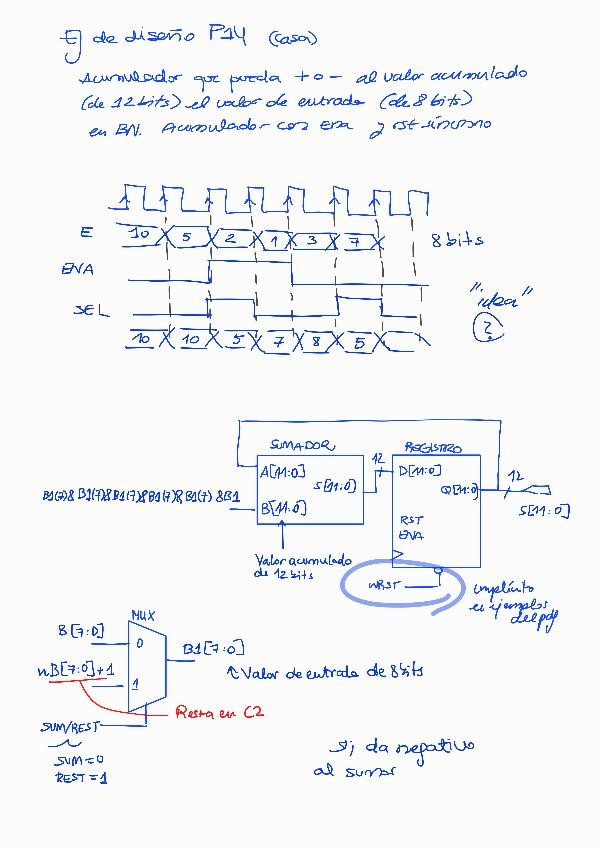 Ej de diseño P14 (casa)
Acumulador que pueda + o - al valor acumulado
(de 12 bits) el valor de entrada (de 8 bits)
en BN. Acumulador con ena y rst síncrono
E 10 5 2 1 3 7 8 bits
ENA
SEL
"idea"
?
10 10 5 7 8 5
SUMADOR REGISTRO
A[11:0] 12 D[11:0] 12
S[11:0] Q[11:0]
B1(7)&B1(7)&B1(7)&B1(7)&B1(7)&B1 B[11:0] S[11:0]
RST
ENA
Valor acumulado
de 12 bits
nRST
implícito
en ejemplos
del pdf
MUX
B[7:0] 0 B1[7:0]
nB[7:0]+1 1
↑ Valor de entrada de 8 bits
Resta en C2
SUM/REST
SUM=0
REST=1
Si da negativo
al sumar